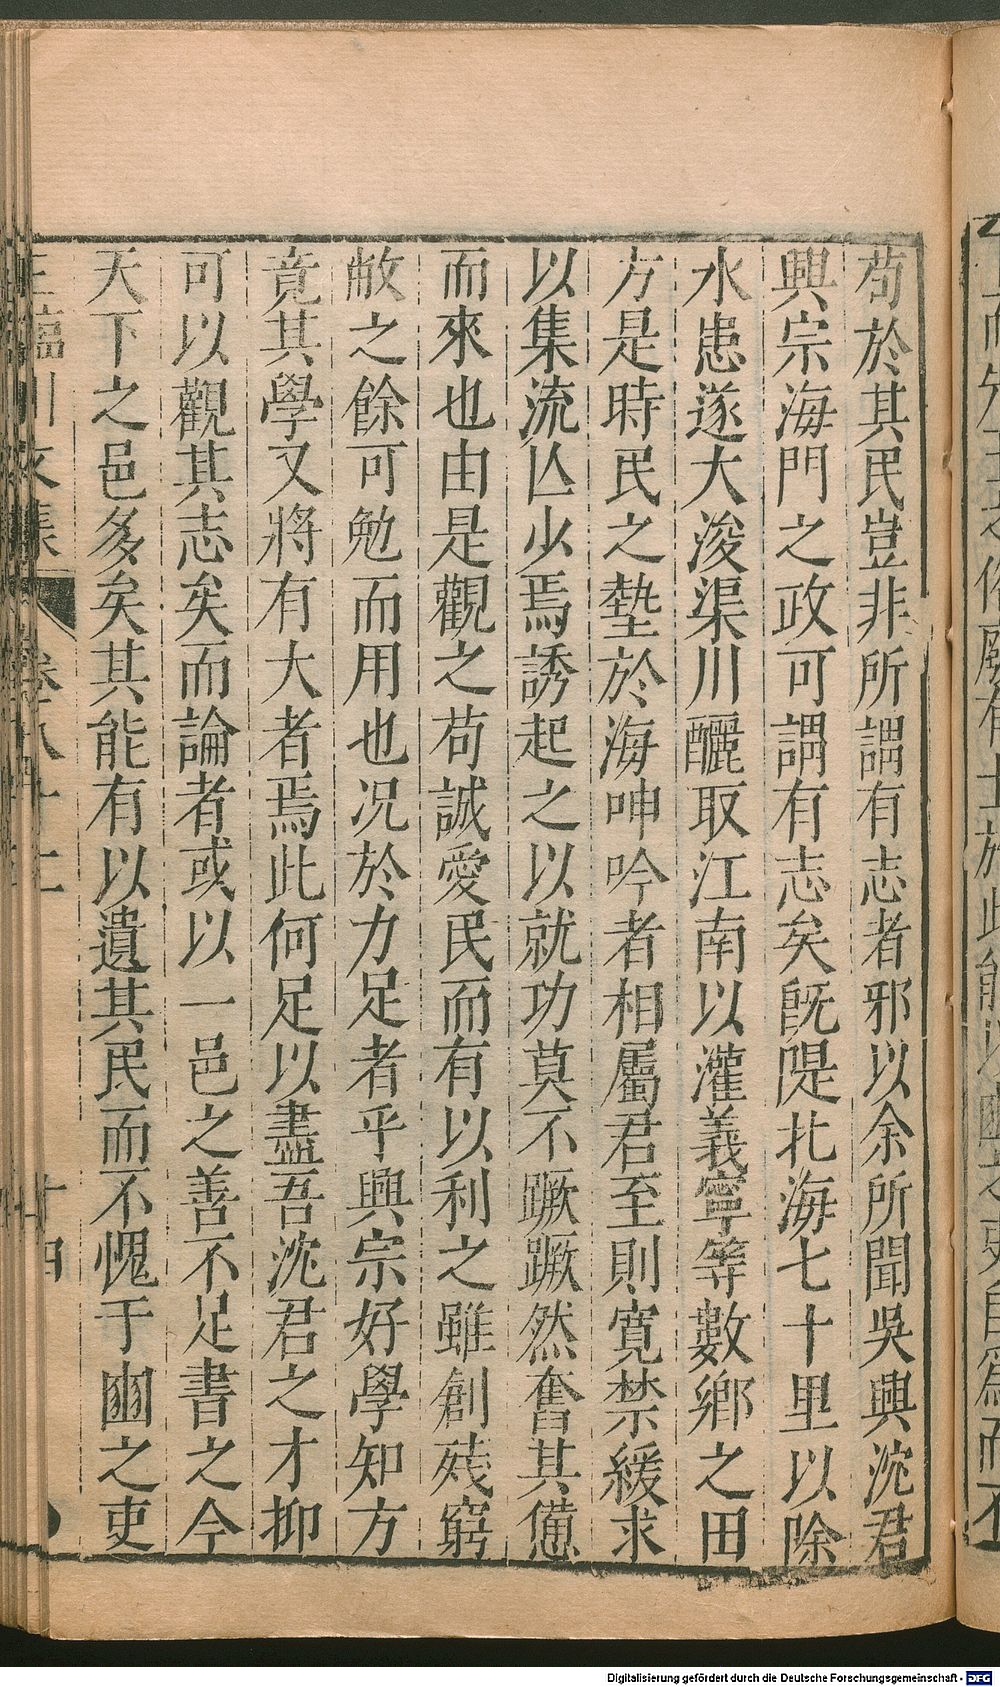 苟於其民豈非所謂有志者邪以余所聞吳興沈君
興宗海門之政可謂有志矣旣隄北海七十里以除
水患遂大浚渠川釃取江南以灌義寧等數鄉之田
方是時民之墊於海呻吟者相屬君至則寬禁緩求
以集流亾少焉誘起之以就功莫不蹶蹶然奮其憊
而來也由是觀之苟誠愛民而有以利之雖創殘窮
敝之餘可勉而用也况於力足者乎興宗好學知方
竟其學又將有大者焉此何足以盡吾沈君之才抑
可以觀其志矣而論者或以一邑之善不足書之今
天下之邑多矣其能有以遺其民而不愧于豳之吏
王臨川文集 卷八十二 廿四
Digitalisierung gefördert durch die Deutsche Forschungsgemeinschaft - DFG